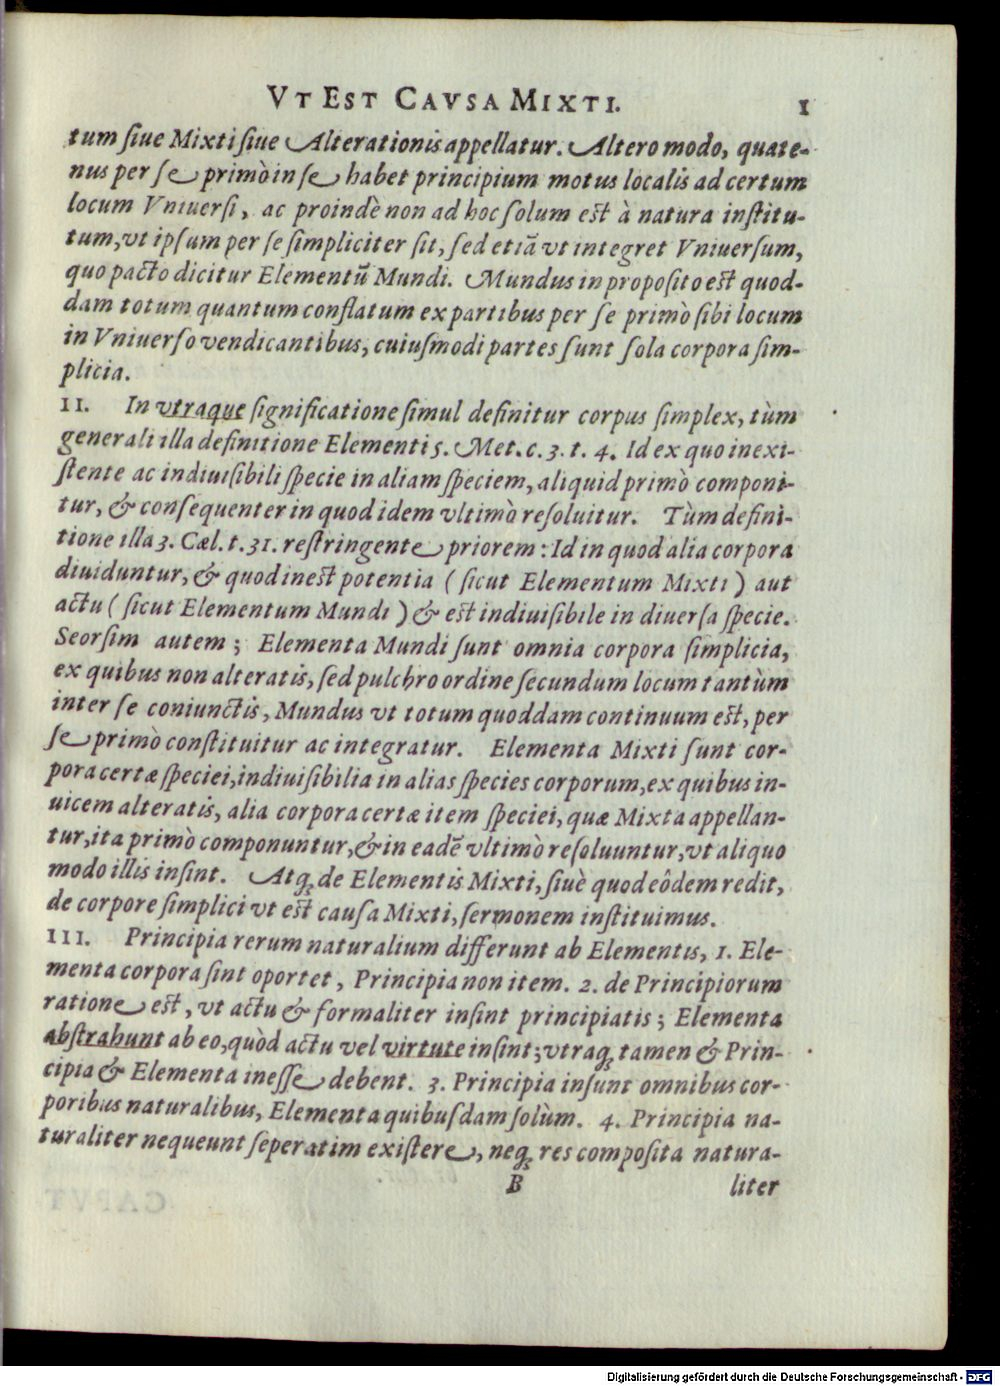 VT EST CAVSA MIXTI. 1
tum ſiue Mixti ſiue Alterationis appellatur. Altero modo, quate-
nus per ſe primò in ſe habet principium motus localis ad certum
locum Vniuerſi, ac proindè non ad hoc ſolum est à natura inſtitu-
tum, vt ipſum per ſe ſimpliciter ſit, ſed etiā vt integret Vniuerſum,
quo pacto dicitur Elementũ Mundi. Mundus in propoſito est quod-
dam totum quantum conflatum ex partibus per ſe primò ſibi locum
in Vniuerſo vendicantibus, cuiuſmodi partes ſunt ſola corpora ſim-
plicia.
II. In vtraque ſignificatione ſimul definitur corpus ſimplex, tùm
generali illa definitione Elementi 5. Met. c. 3. t. 4. Id ex quo inexi-
ſtente ac indiuiſibili ſpecie in aliam ſpeciem, aliquid primò componi-
tur, & conſequenter in quod idem vltimò reſoluitur. Tùm defini-
tione illa 3. Cæl. t. 31. reſtringente priorem: Id in quod alia corpora
diuiduntur, & quod inest potentia (ſicut Elementum Mixti) aut
actu (ſicut Elementum Mundi) & est indiuiſibile in diuerſa ſpecie.
Seorſim autem; Elementa Mundi ſunt omnia corpora ſimplicia,
ex quibus non alteratis, ſed pulchro ordine ſecundum locum tantùm
inter ſe coniunctis, Mundus vt totum quoddam continuum est, per
ſe primò conſtituitur ac integratur. Elementa Mixti ſunt cor-
pora certæ ſpeciei, indiuiſibilia in alias ſpecies corporum, ex quibus in-
uicem alteratis, alia corpora certæ item ſpeciei, quæ Mixta appellan-
tur, ita primò componuntur, & in eadē vltimò reſoluuntur, vt aliquo
modo illis inſint. Atq; de Elementis Mixti, ſiuè quod eôdem redit,
de corpore ſimplici vt est cauſa Mixti, ſermonem inſtituimus.
III. Principia rerum naturalium differunt ab Elementis, 1. Ele-
menta corpora ſint oportet, Principia non item. 2. de Principiorum
ratione est, vt actu & formaliter inſint principiatis; Elementa
abſtrahunt ab eo, quòd actu vel virtute inſint; vtraq; tamen & Prin-
cipia & Elementa ineſſe debent. 3. Principia inſunt omnibus cor-
poribus naturalibus, Elementa quibuſdam ſolùm. 4. Principia na-
turaliter nequeunt ſeperatim exiſtere, neq; res compoſita natura-
B liter
Digitalisierung gefördert durch die Deutsche Forschungsgemeinschaft - DFG